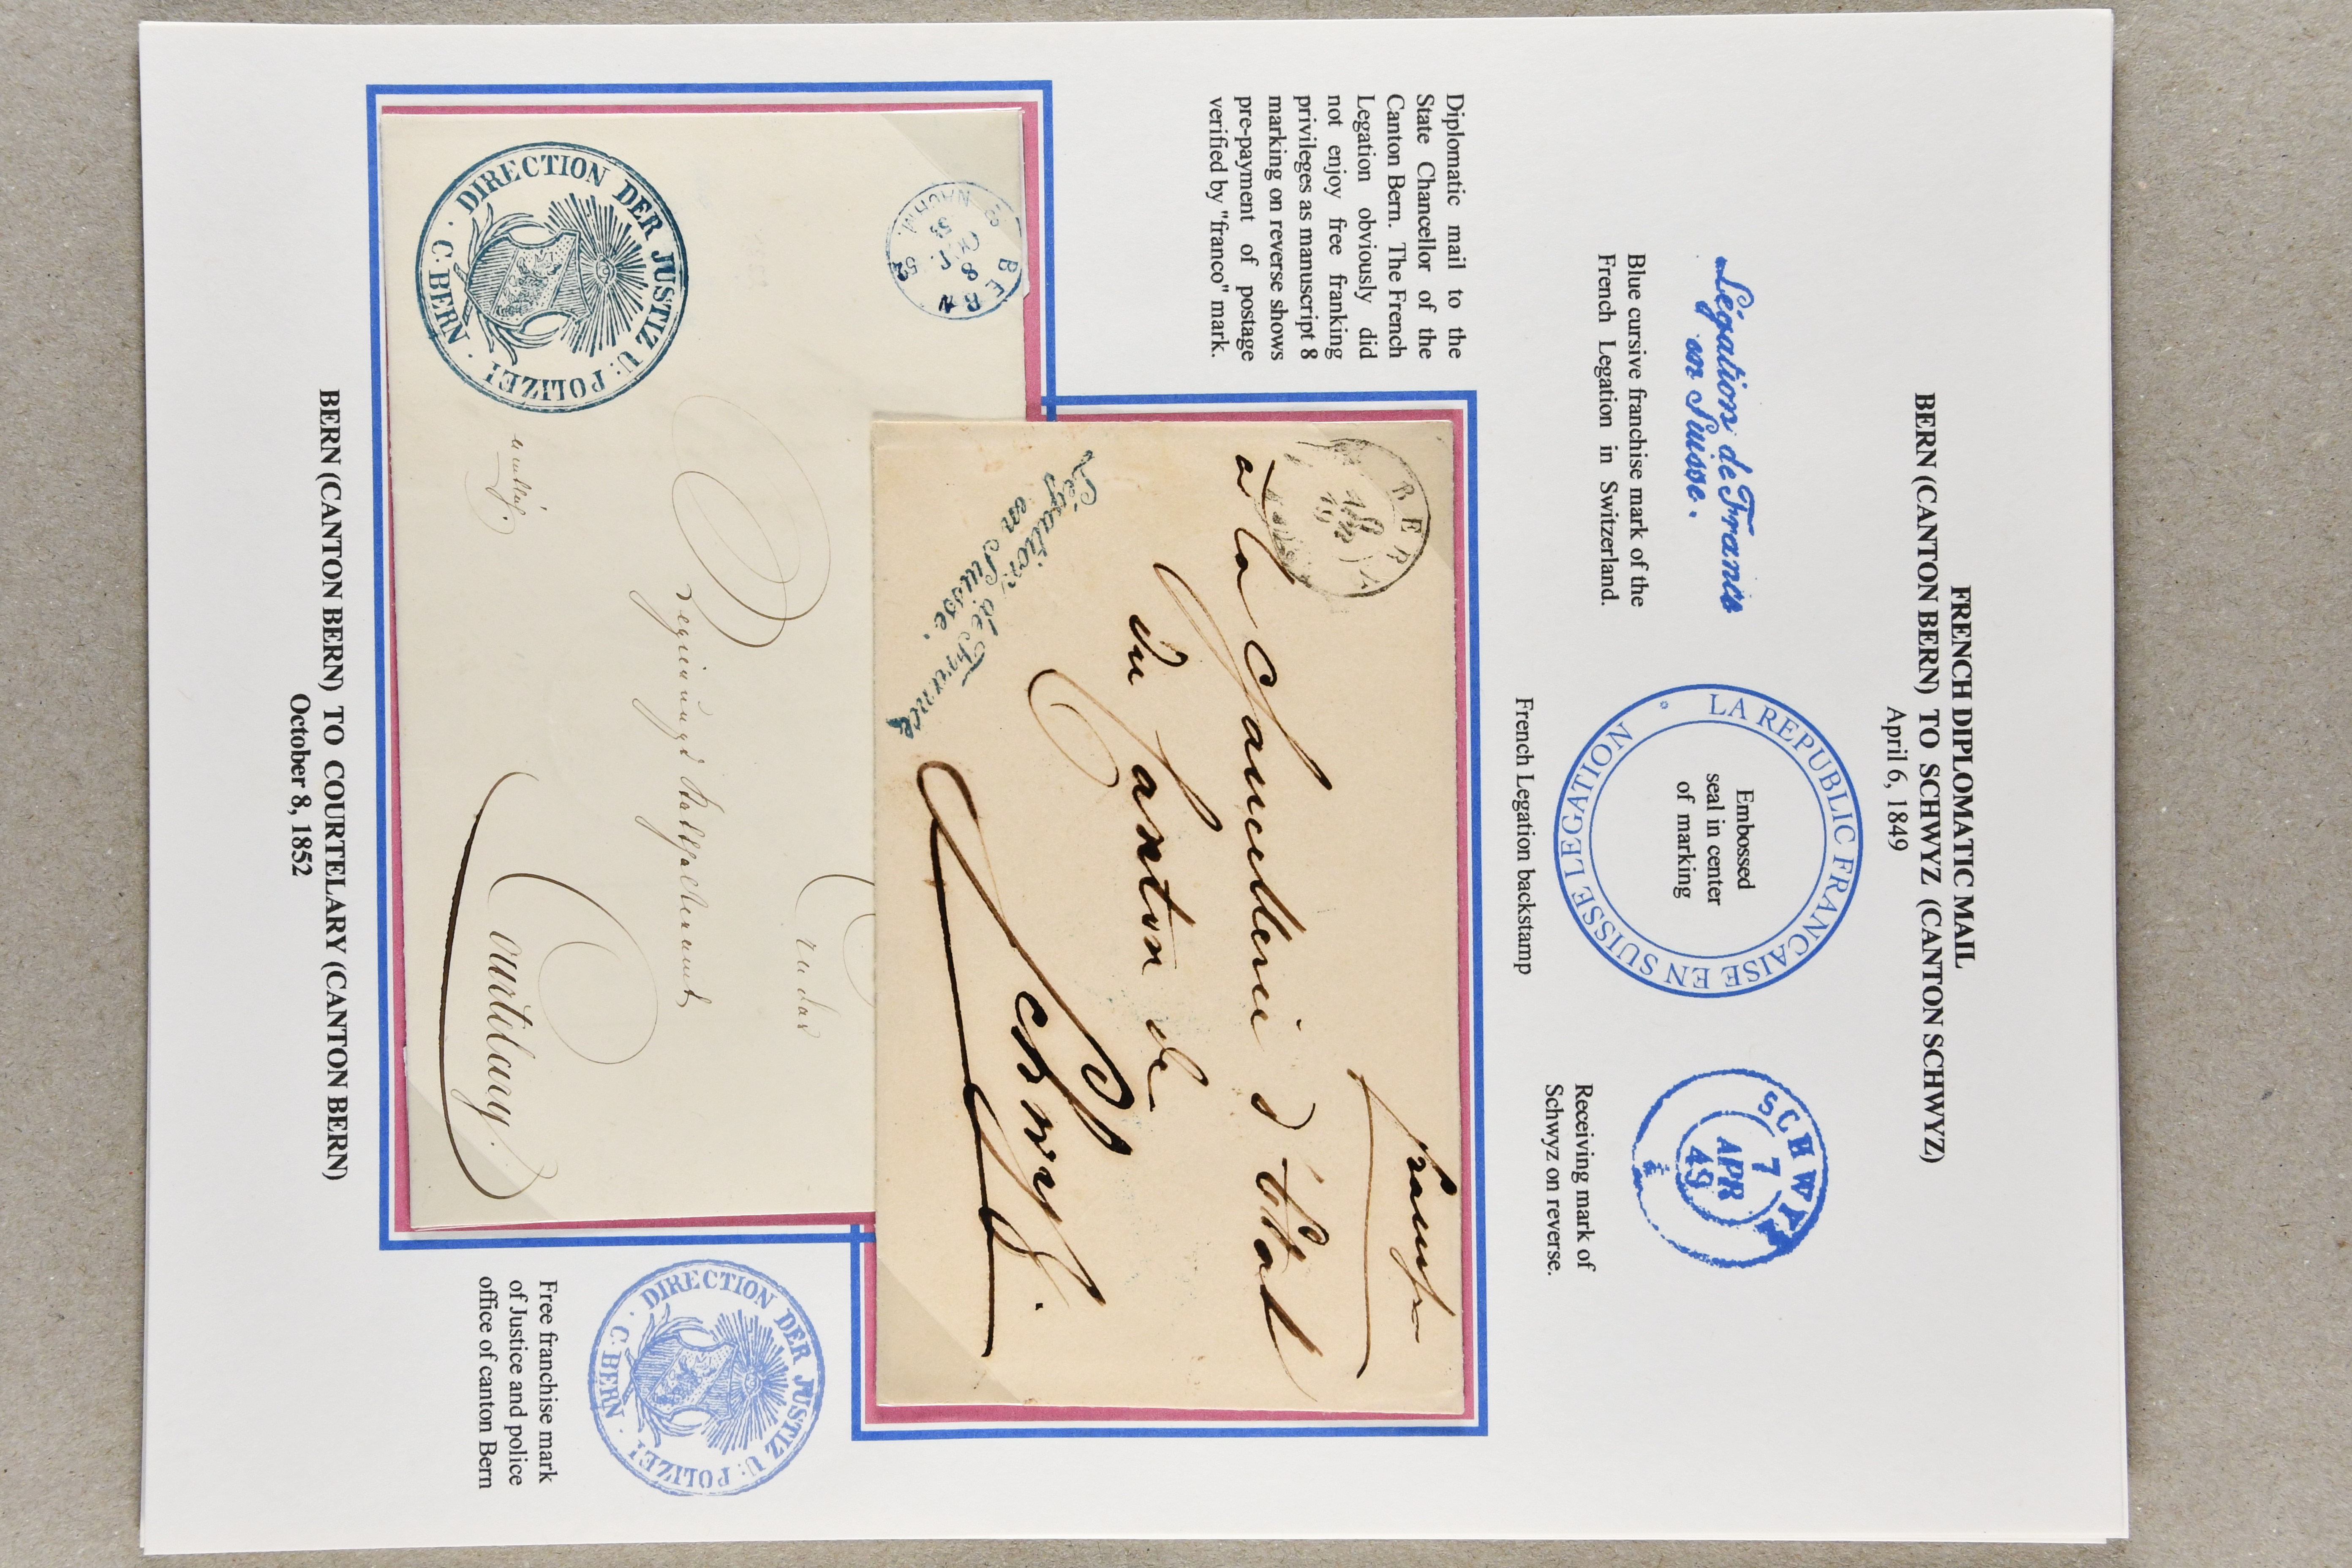 FRENCH DIPLOMATIC MAIL
BERN (CANTON BERN) TO SCHWYZ (CANTON SCHWYZ)
April 6, 1849
Légation de France
en Suisse.
Blue cursive franchise mark of the
French Legation in Switzerland.
LA REPUBLIC FRANCAISE EN SUISSE LEGATION
Embossed
seal in center
of marking
French Legation backstamp
SCHWYZ
7
APR
49
Receiving mark of
Schwyz on reverse.
Diplomatic mail to the
State Chancellor of the
Canton Bern. The French
Legation obviously did
not enjoy free franking
privileges as manuscript 8
marking on reverse shows
pre-payment of postage
verified by "franco" mark.
BERN
franco
a la Chancellerie d'État
du Canton de
Schwyz.
Légation de France
en Suisse.
BERN
8
52
NACHM
DIRECTION DER JUSTIZ U: POLIZEI
C. BERN
An das
Regierungsstatthalteramt
Courtelary.
DIRECTION DER JUSTIZ U: POLIZEI
C. BERN
Free franchise mark
of Justice and police
office of canton Bern
BERN (CANTON BERN) TO COURTELARY (CANTON BERN)
October 8, 1852